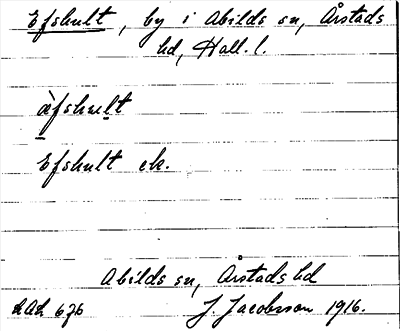 Efshult, by i Abilds sn, Årstads
hd, Hall. l.
àfshult
Efshult ek.
Abilds sn, Årstads hd
J. Jacobsson 1916.